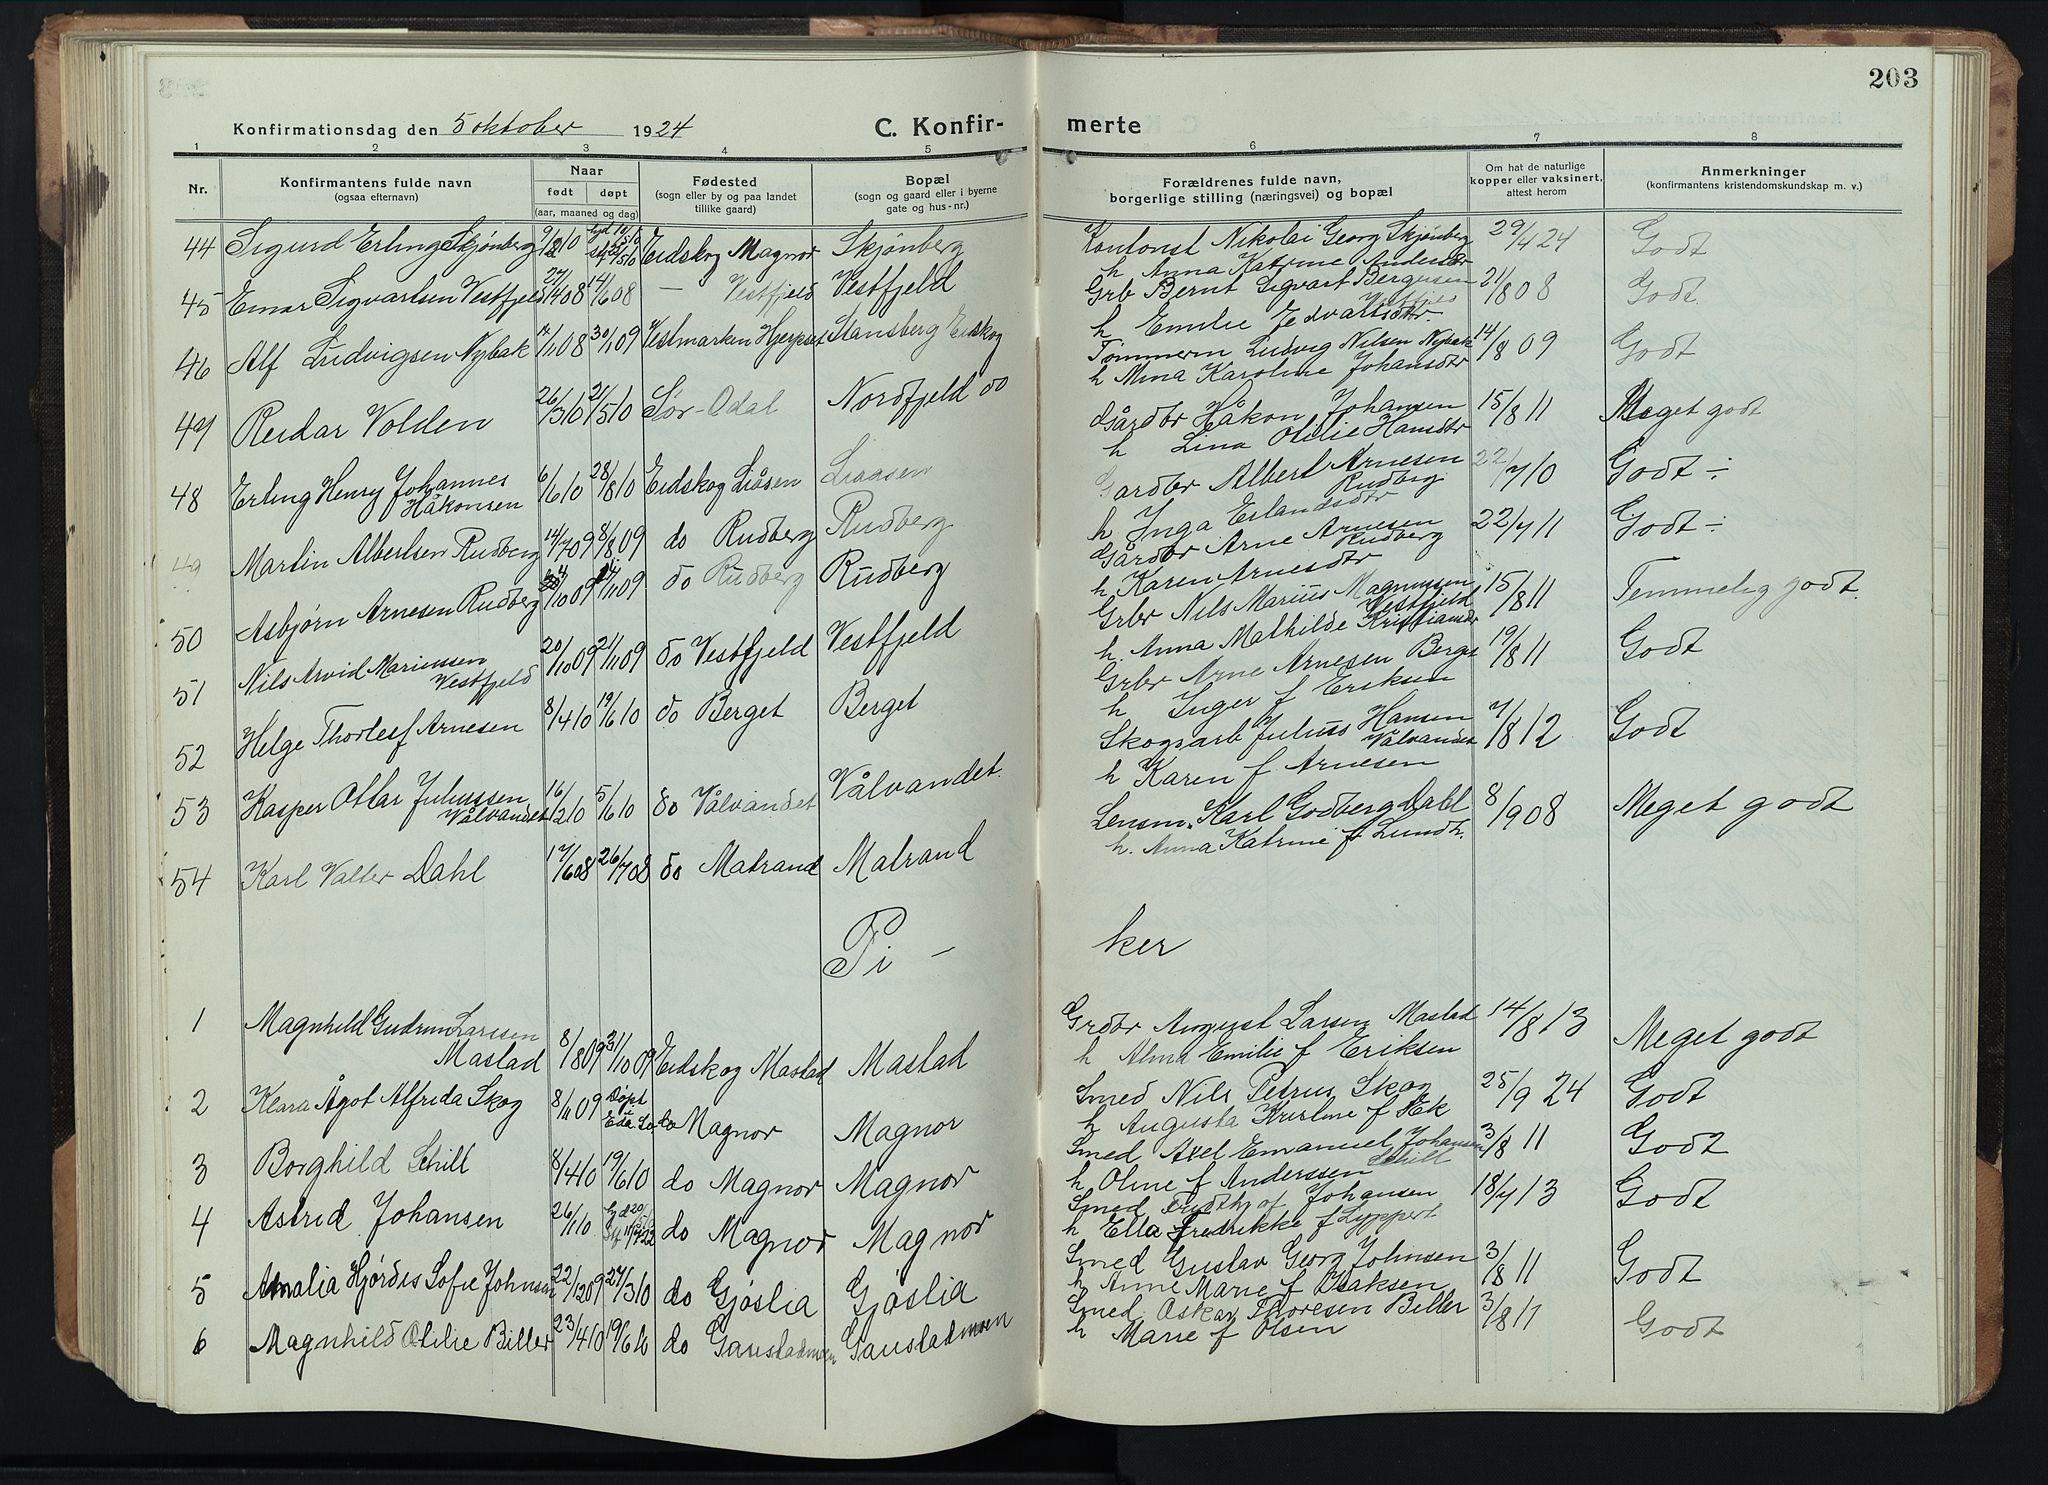 203
Konfirmationsdag den 5 oktober 1924
C. Konfir- merte
1 2 3 4 5 6 7 8
Nr.
Konfirmantens fulde navn
(ogsaa efternavn)
Naar
født døpt
(aar, maaned og dag)
Fødested
(sogn eller by og paa landet
tillike gaard)
Bopæl
(sogn og gaard eller i byerne
gate og hus-nr.)
Forældrenes fulde navn,
borgerlige stilling (næringsvei) og bopæl
Om hat de naturlige
kopper eller vaksinert,
attest herom
Anmerkninger
(konfirmantens kristendomskundskap m. v.)
44 Sigurd Erling Skjønberg 9/2 10 Eidskog Magnor Skjønberg Kontorist Nikolai Georg Skjønberg 29/4 24 Godt
h Anna Katrine Andersdr
45 Einar Sigvartsen Vestfjeld 27/4 08 14/6 08 — Vestfjeld Vestfjeld Grb Bernt Sigvart Bergersen 21/8 08 Godt
Vestfjeld
h Emilie Edvartsdtr.
46 Alf Ludvigsen Nybak 17/11 08 30/1 09 Vestmarken Hjerpset Stansberg Eidskog Tømmerm Ludvig Nilsen Nybak 14/8 09 Godt
h Mina Karoline Johansdtr
47 Reidar Volden 26/3 10 21/5 10 Sør-Odal Nordfjeld do
48 Erling Henry Johannes
Håkonsen 6/6 10 28/8 10 Eidskog Liåsen Liaasen Gårdbr Håkon Johansen 15/8 11 Meget godt
h Lina Otilie Hansdtr
49 Martin Albertsen Rudberg 14/7 09 8/8 09 do Rudberg Rudberg Gardbr Albert Arnesen 22/7 10 Godt ÷
Rudberg
h Inga Erlandsdtr
50 Asbjørn Arnesen Rudberg /10 09 /11 09 do Rudberg Rudberg Gårdbr Arne Arnesen 22/7 11 Godt ÷
Rudberg
h Karen Arnesdtr
51 Nils Arvid Mariussen
Vestfjeld 20/10 09 21/11 09 do Vestfjeld Vestfjeld Grbr Nils Marius Magnussen 15/8 11 Temmelig godt.
Vestfjeld
h. Anna Mathilde Kristiansdr
52 Helge Thorleif Arnesen 8/4 10 19/6 10 do Berget Berget Grbr Arne Arnesen Berget 19/8 11 Godt
h Inger f Eriksen
53 Kasper Ottar Juliussen
Vålvandet 16/2 10 5/6 10 do Vålvandet Vålvandet. Skogsarb Julius Hansen 7/8 12 Godt
Vålvandet
h Karen f. Arnesen
54 Karl Valter Dahl 17/6 08 26/7 08 do Matrand Matrand Lensm. Karl Godberg Dahl 8/9 08 Meget godt
h. Anna Katrine f. Lundh.
Pi - ker
1 Magnhild Gudrun Larsen
Mastad 8/8 09 31/10 09 Eidskog Mastad Mastad Grdbr August Larsen Mastad 14/8 13 Meget godt
h Alma Emilie f Eriksen
2 Klara Ågot Alfrida Skog 8/11 09 Døpt i
Eda Sv. do Magnor Magnor Smed Nils Petrus Skog 25/9 24 Godt
h Augusta Kristine f Ek
3 Borghild Schill 8/4 10 19/6 10 do Magnor Magnor Smed Axel Emanuel Johansen 3/8 11 Godt
Schill
h Oline f Anderssen
4 Astrid Johansen 26/1 10 do Magnor Magnor Smed Fridthjof Johansen 18/7 13 Godt
h Ella Fredrikke f Lyppert
5 Amalia Hjørdis Sofie Johnsen 22/12 09 27/3 10 do Gjøslia Gjøslia Smed Gustav Georg Johnsen 3/8 11 Godt
h Anne Marie f Isaksen
6 Magnhild Otilie Biller 23/4 10 19/6 10 do Gaustadmoen Gaustadmoen Smed Oskar Thoresen Biller 3/8 11 Godt
h Marie f Olsen